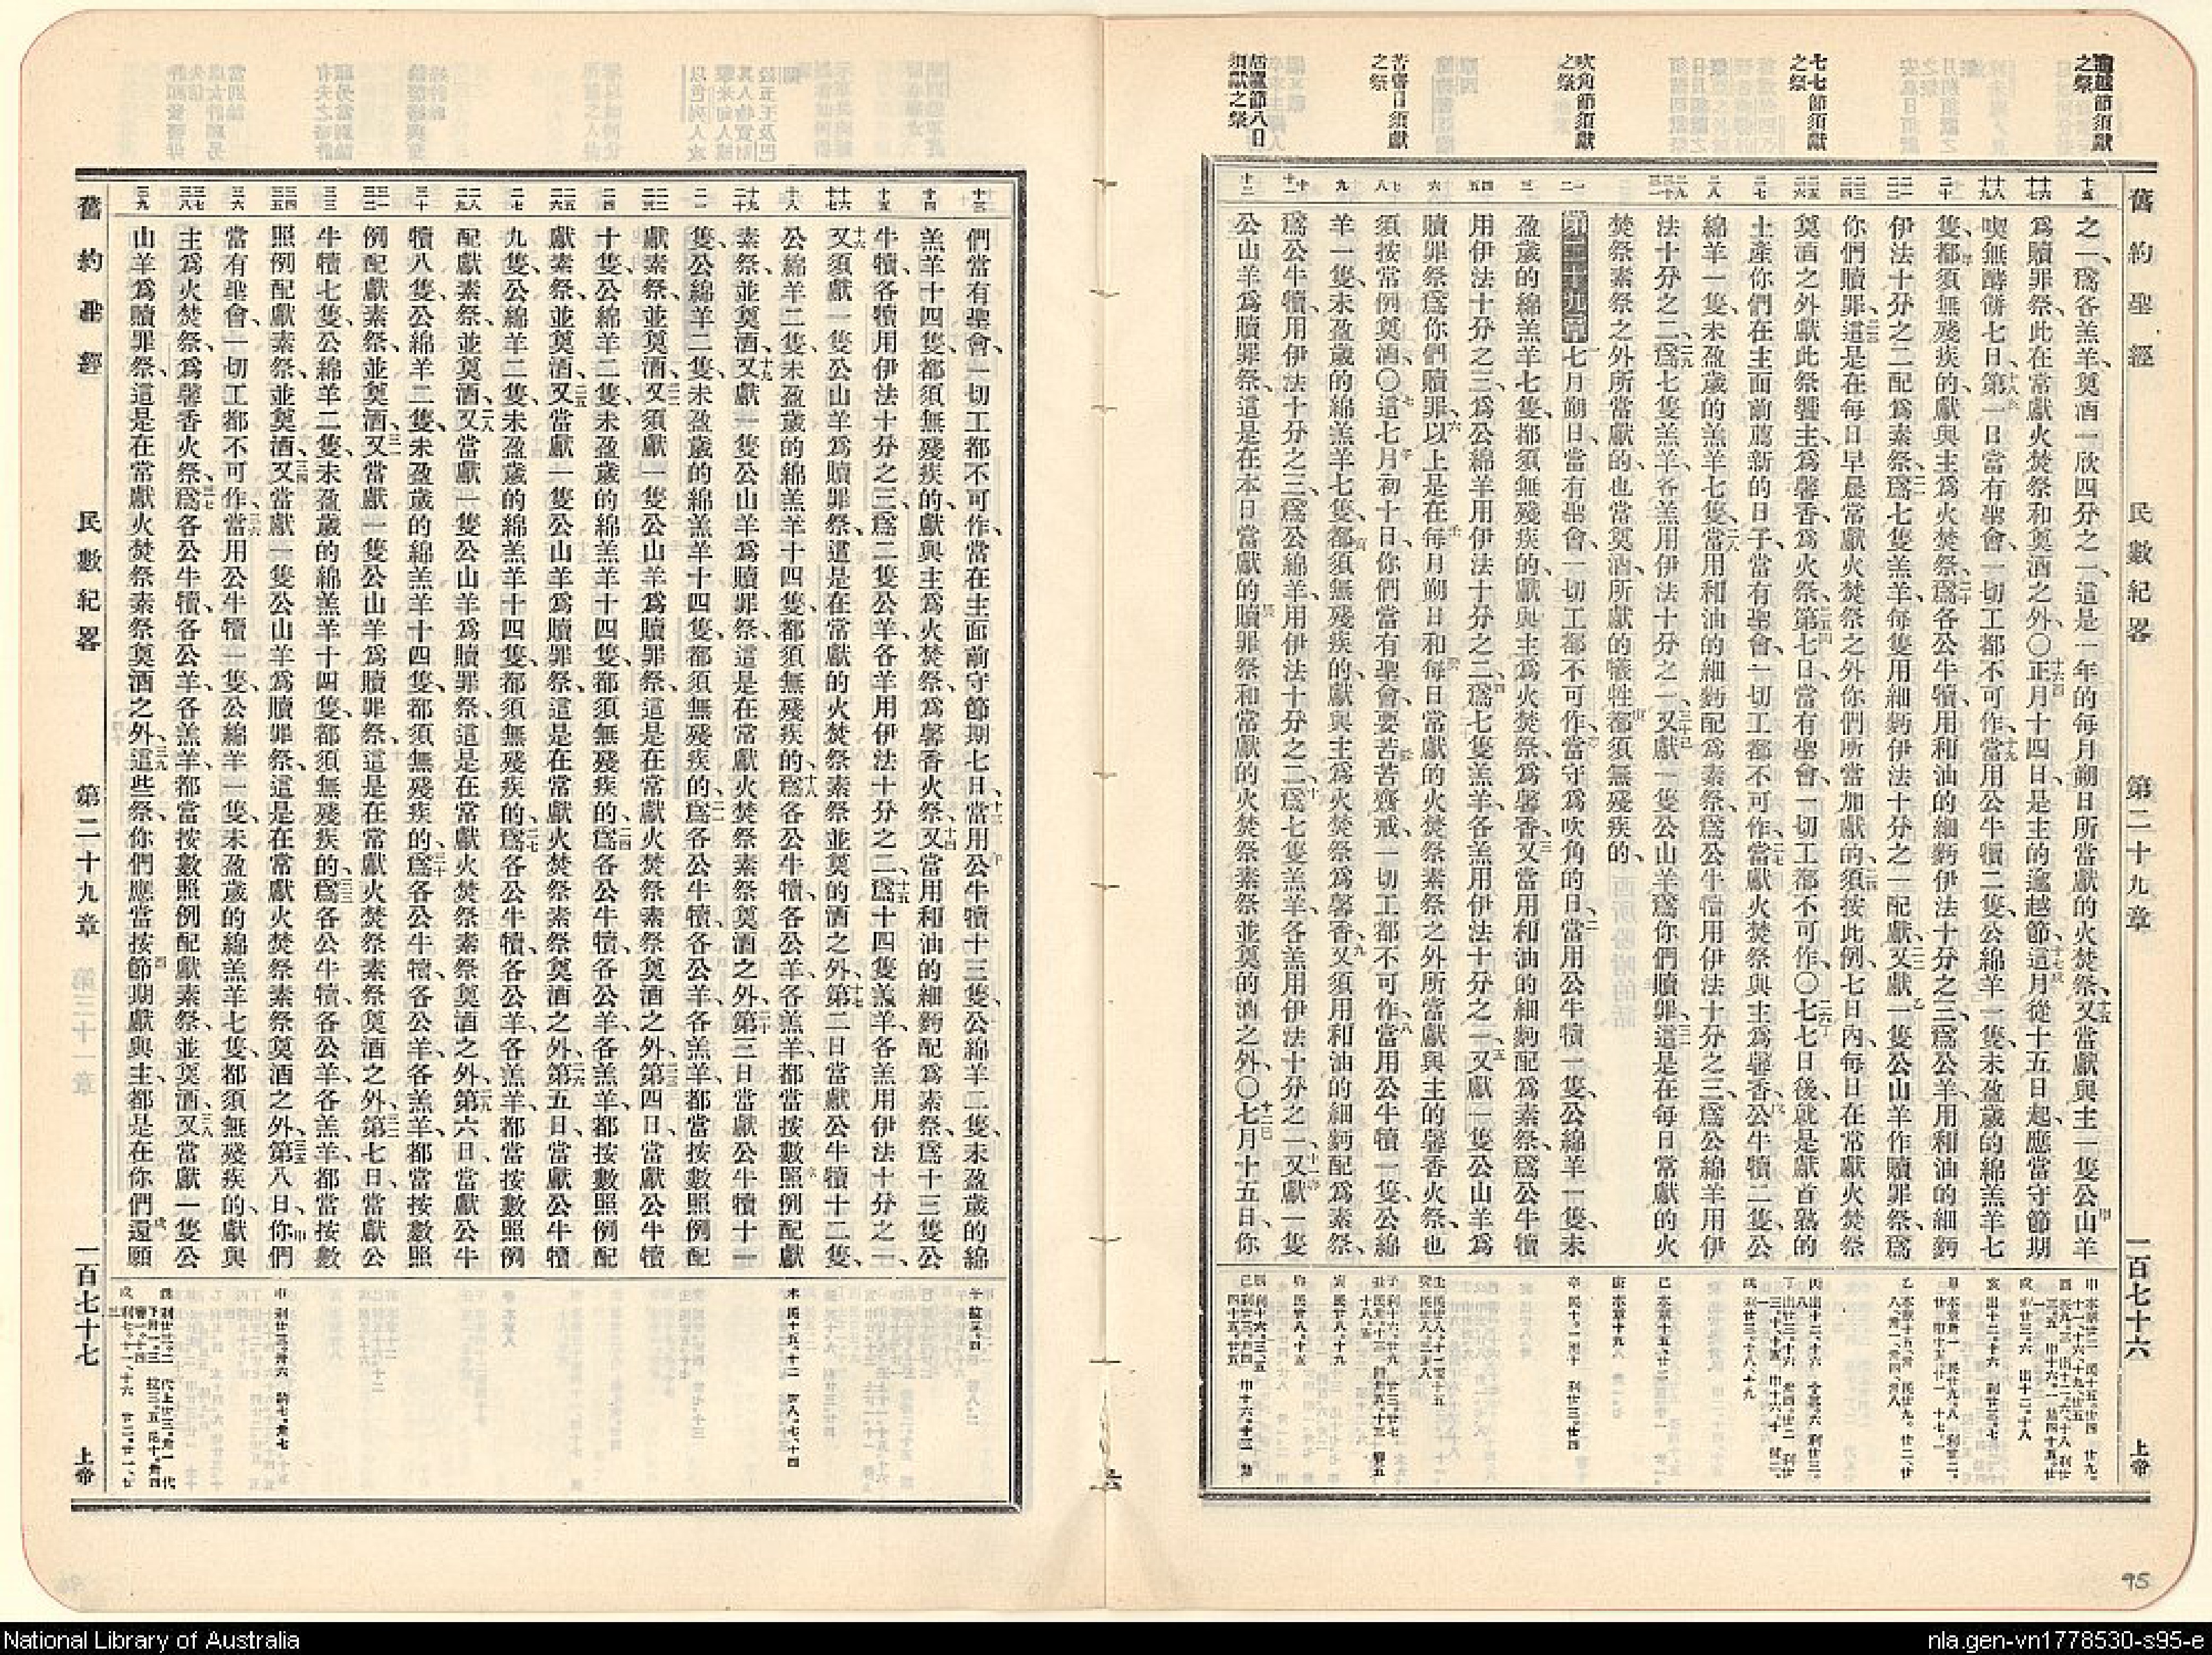 舊約聖經 民數紀畧 第二十九章 一百七十六 上帝
逾越節須獻之祭
七七節須獻之祭
吹角節須獻之祭
苦齋日須獻之祭
居廬節八日須獻之祭
之一、爲各羔羊、奠酒一欣四分之一、這是一年的每月朔日所當獻的火焚祭、又當獻與主一隻公山羊
爲贖罪祭、此在常獻火焚祭和奠酒之外、〇正月十四日、是主的逾越節、這月從十五日起、應當守節期
喫無酵餅七日、第一日當有聖會、一切工都不可作、當用公牛犢二隻、公綿羊一隻、未盈歲的綿羔羊七
隻、都須無殘疾的、獻與主爲火焚祭、爲各公牛犢、用和油的細麪伊法十分之三、爲公羊、用和油的細麪
伊法十分之二、配爲素祭、爲七隻羔羊、每隻用細麪伊法十分之一、配獻、又獻一隻公山羊作贖罪祭、爲
你們贖罪、這是在每日早晨常獻火焚祭之外、你們所當加獻的、須按此例、七日內每日在常獻火焚祭
奠酒之外、獻此祭饗主、爲馨香、爲火祭、第七日當有聖會、一切工都不可作、〇七七日後、就是獻首熟的
土產、你們在主面前薦新的日子、當有聖會、一切工都不可作、當獻火焚祭與主爲馨香、公牛犢二隻、公
綿羊一隻、未盈歲的羔羊七隻、當用和油的細麪配爲素祭、爲公牛犢用伊法十分之三、爲公綿羊用伊
法十分之二、爲七隻羔羊、各羔用伊法十分之一、又獻一隻公山羊爲你們贖罪、這是在每日常獻的火
焚祭素祭之外所當獻的、也當奠酒、所獻的犧牲都須無殘疾的、
第二十九章 七月朔日、當有聖會、一切工都不可作、當守爲吹角的日、當用公牛犢一隻、公綿羊一隻、未
盈歲的綿羔羊七隻、都須無殘疾的、獻與主爲火焚祭、爲馨香、又當用和油的細麪配爲素祭、爲公牛犢
用伊法十分之三、爲公綿羊用伊法十分之二、爲七隻羔羊、各羔用伊法十分之一、又獻一隻公山羊爲
贖罪祭、爲你們贖罪、以上是在每月朔日和每日常獻的火焚祭素祭之外、所當獻與主的馨香火祭、也
須按常例奠酒、〇這七月初十日、你們當有聖會、要苦苦齋戒、一切工都不可作、當用公牛犢一隻、公綿
羊一隻、未盈歲的綿羔羊七隻、都須無殘疾的、獻與主爲火焚祭爲馨香、又須用和油的細麪配爲素祭、
爲公牛犢、用伊法十分之三、爲公綿羊、用伊法十分之二、爲七隻羔羊、各羔用伊法十分之一、又獻一隻
公山羊爲贖罪祭、這是在本日當獻的贖罪祭和常獻的火焚祭素祭並奠的酒之外、〇七月十五日、你
們當有聖會、一切工都不可作、當在主面前守節期七日、當用公牛犢十三隻、公綿羊二隻、未盈歲的綿
羔羊十四隻、都須無殘疾的、獻與主爲火焚祭、爲馨香火祭、又當用和油的細麪配爲素祭、爲十三隻公
牛犢、各犢用伊法十分之三、爲二隻公羊、各羊用伊法十分之二、爲十四隻羔羊、各羔用伊法十分之一、
又須獻一隻公山羊爲贖罪祭、這是在常獻的火焚祭素祭並奠的酒之外、第二日當獻公牛犢十二隻、
公綿羊二隻、未盈歲的綿羔羊十四隻、都須無殘疾的、爲各公牛犢、各公羊、各羔羊、都當按數照例配獻
素祭、並奠酒、又獻一隻公山羊爲贖罪祭、這是在常獻火焚祭素祭奠酒之外、第三日當獻公牛犢十一
隻、公綿羊二隻、未盈歲的綿羔羊十四隻、都須無殘疾的、爲各公牛犢、各公羊、各羔羊、都當按數照例配
獻素祭、並奠酒、又須獻一隻公山羊爲贖罪祭、這是在常獻火焚祭素祭奠酒之外、第四日當獻公牛犢
十隻、公綿羊二隻、未盈歲的綿羔羊十四隻、都須無殘疾的、爲各公牛犢、各公羊、各羔羊、都按數照例配
獻素祭、並奠酒、又當獻一隻公山羊爲贖罪祭、這是在常獻火焚祭素祭奠酒之外、第五日當獻公牛犢
九隻、公綿羊二隻、未盈歲的綿羔羊十四隻、都須無殘疾的、爲各公牛犢、各公羊、各羔羊、都當按數照例
配獻素祭、並奠酒、又當獻一隻公山羊爲贖罪祭、這是在常獻火焚祭素祭奠酒之外、第六日當獻公牛
犢八隻、公綿羊二隻、未盈歲的綿羔羊十四隻、都須無殘疾的、爲各公牛犢、各公羊、各羔羊、都當按數照
例配獻素祭、並奠酒、又當獻一隻公山羊爲贖罪祭、這是在常獻火焚祭素祭奠酒之外、第七日當獻公
牛犢七隻、公綿羊二隻、未盈歲的綿羔羊十四隻、都須無殘疾的、爲各公牛犢、各公羊、各羔羊、都當按數
照例配獻素祭、並奠酒、又當獻一隻公山羊爲贖罪祭、這是在常獻火焚祭素祭奠酒之外、第八日、你們
當有聖會、一切工都不可作、當用公牛犢一隻、公綿羊一隻、未盈歲的綿羔羊七隻、都須無殘疾的、獻與
主爲火焚祭、爲馨香火祭、爲各公牛犢、各公羊、各羔羊、都當按數照例配獻素祭、並奠酒、又當獻一隻公
山羊爲贖罪祭、這是在常獻火焚祭素祭奠酒之外、這些祭、你們應當按節期獻與主、都是在你們還願
舊約聖經 民數紀畧 第二十九章 一百七十七 上帝
95
National Library of Australia
nla.gen-vn1778530-s95-e